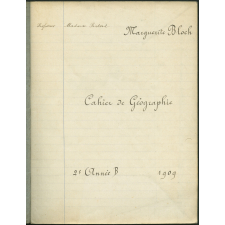 Professeur Madame
Marguerite Bloch
Cahier de Géographie
2e Année B 1909